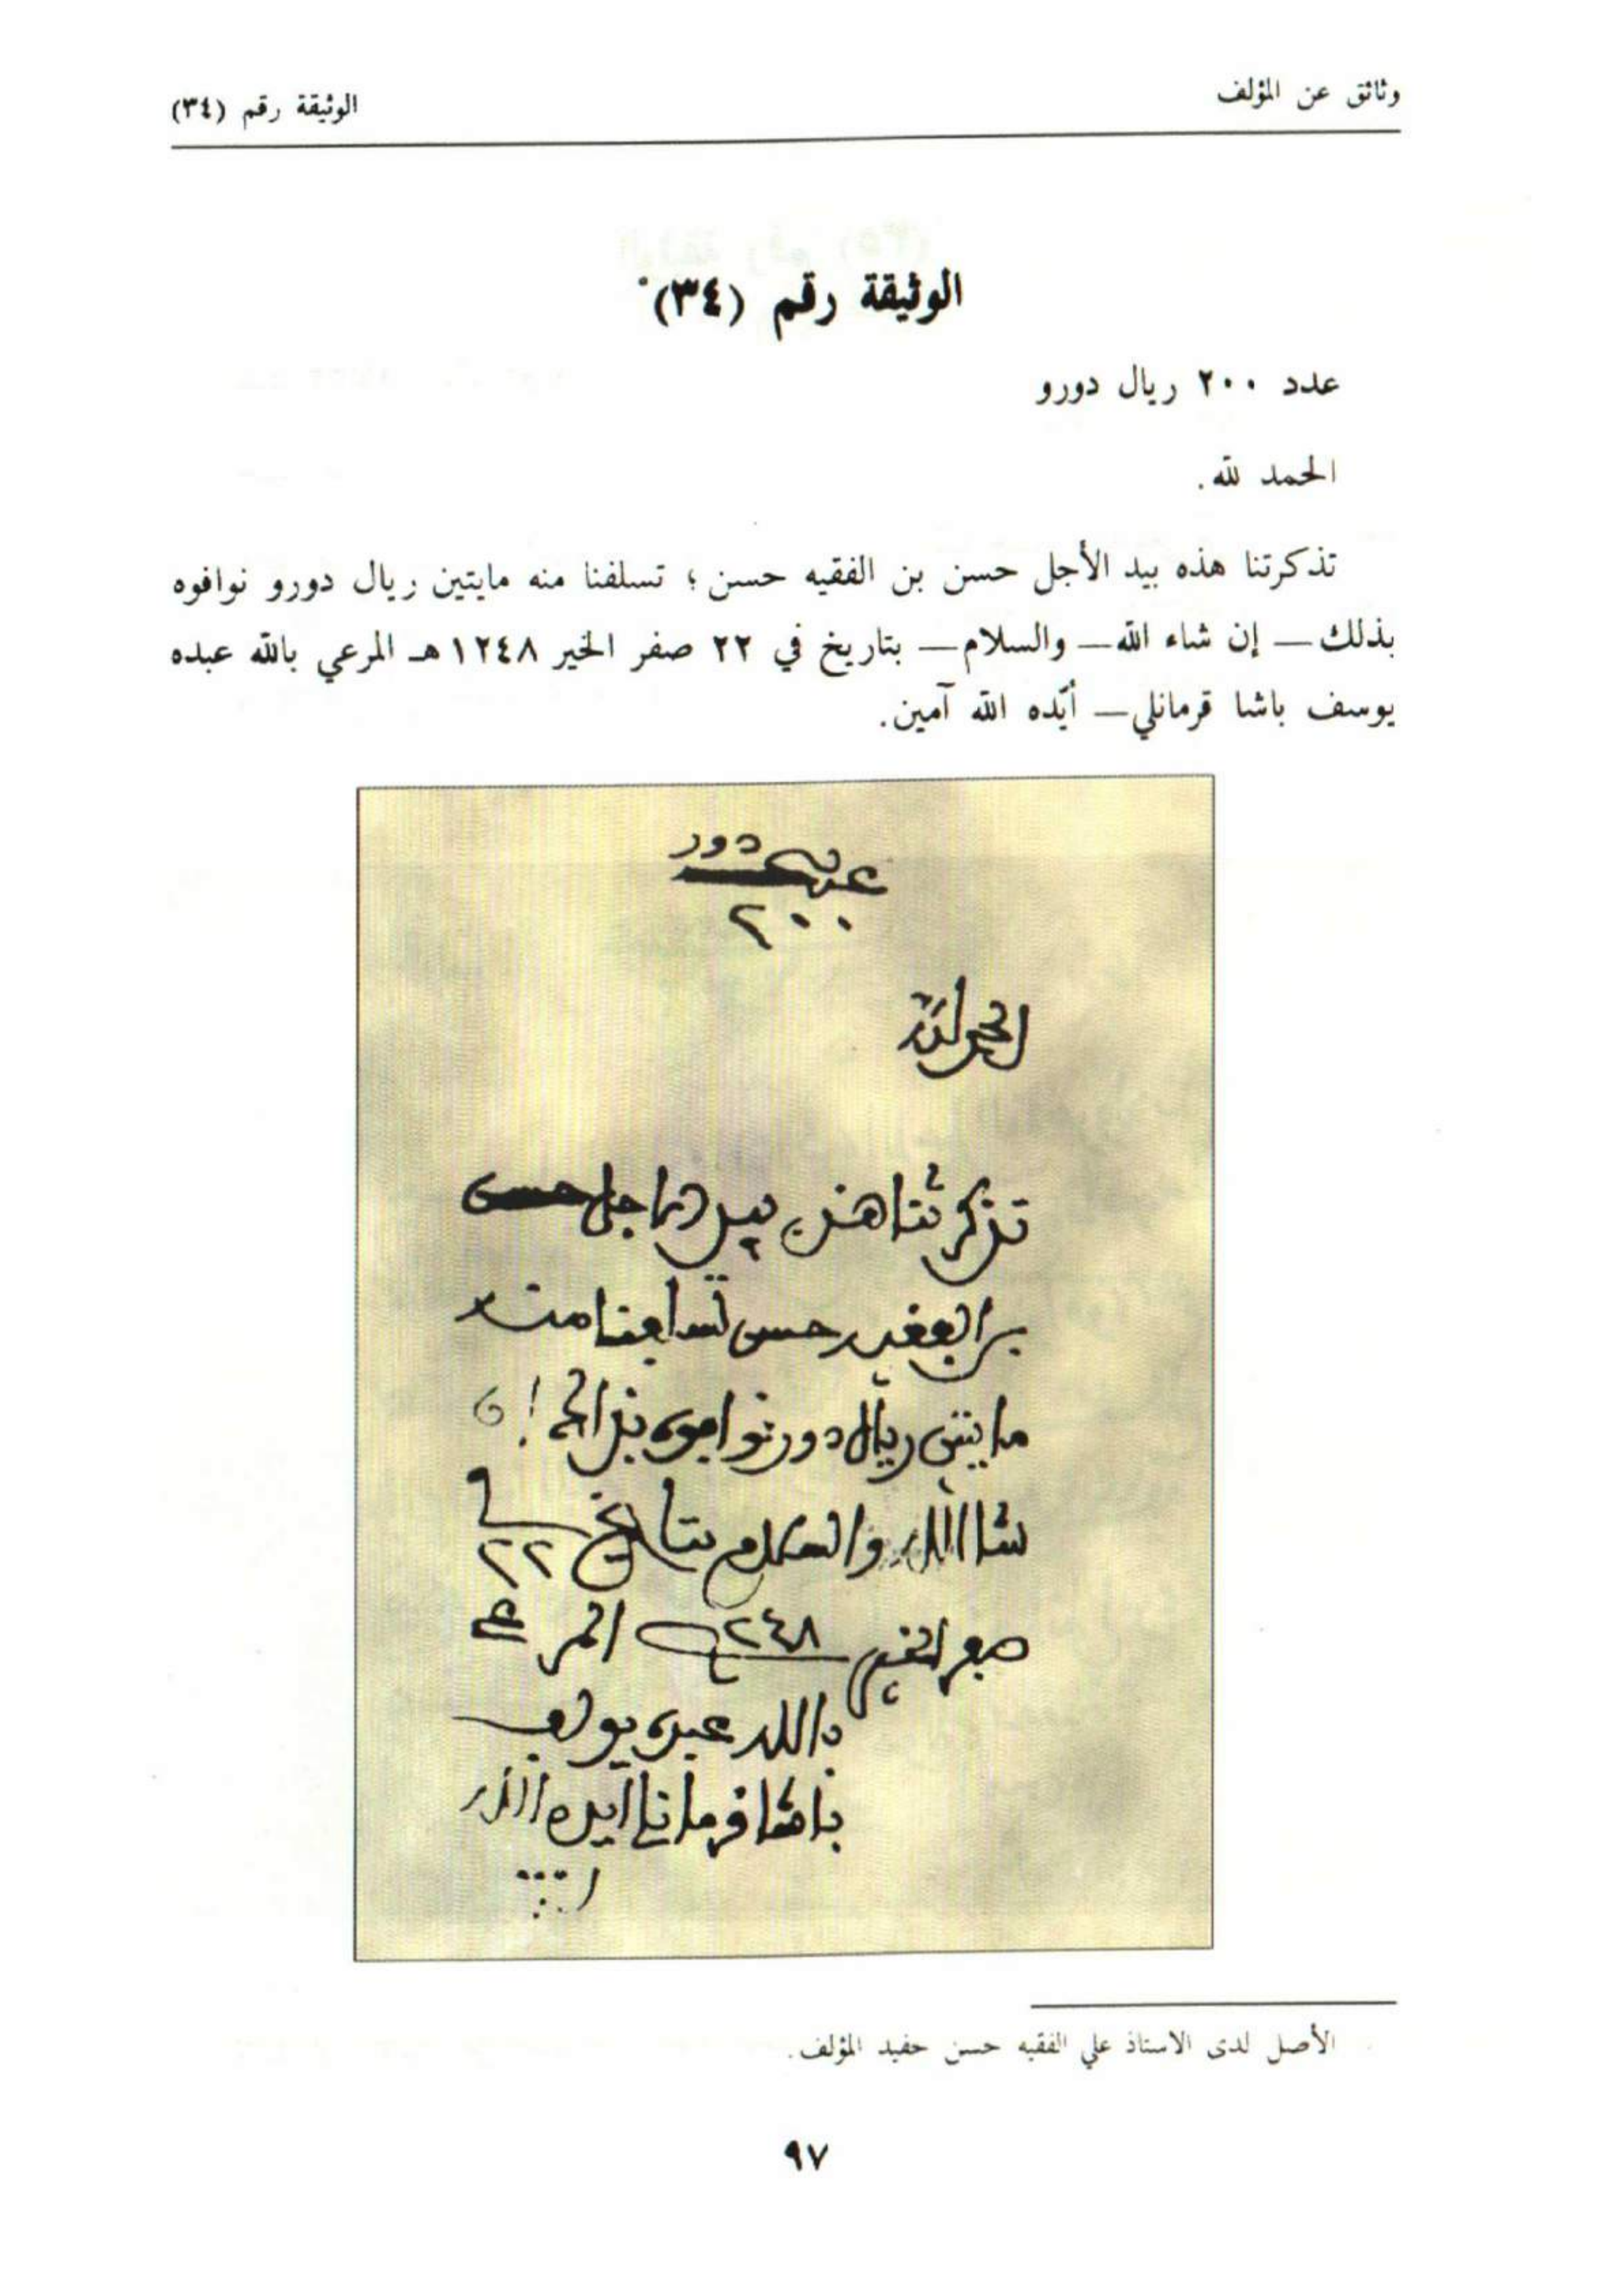 وثائق عن المؤلف
الوثيقة رقم (٣٤)
الوثيقة رقم (٣٤)*
عدد ٢٠٠ ريال دورو
الحمد لله.
تذكرتنا هذه بيد الأجل حسن بن الفقيه حسن ؛ تسلفنا منه مايتين ريال دورو نوافوه
بذلك — إن شاء الله — والسلام — بتاريخ في ٢٢ صفر الخير ١٢٤٨هـ المرعي بالله عبده
يوسف باشا قرمانلي — أيّده الله آمين.
دور
٢٠٠
الحمد لله
تذكرتنا هذه بيد الاجل حسن
بن الفقيه حسن تسلفنا منه
مايتين ريال دور نوافوه بذالك ان
شا الله والسلام بتاريخ في ٢٢
صفر الخير ١٢٤٨ المرعي
بالله عبده يوسف
باشا قرمانلي ايده الله
الأصل لدى الاستاذ علي الفقيه حسن حفيد المؤلف.
٩٧